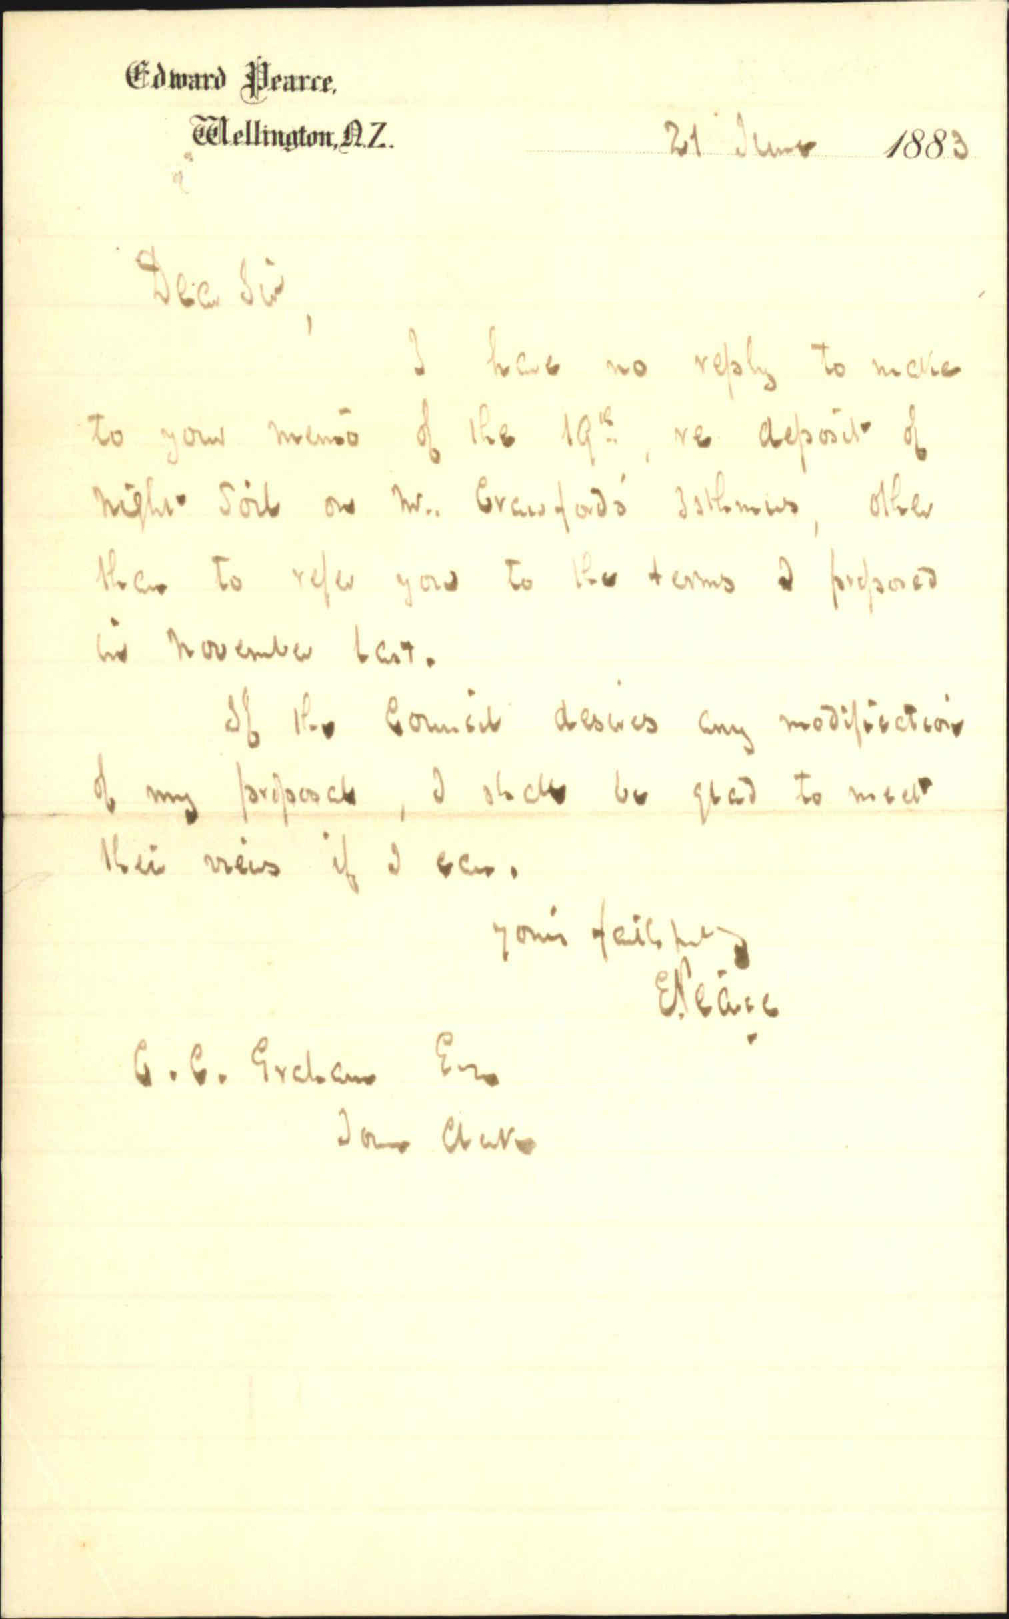 Edward Pearce,
Wellington, N.Z.
21 June 1883
Dear Sir,
I have no reply to make
to your memo of the 19th, re deposit of
night soil on Mr. Crawford's Isthmus, other
than to refer you to the terms I proposed
in November last.
If the Council desires any modification
of my proposal, I shall be glad to meet
their views if I can.
Yours faithfully
E. Pearce
C. C. Graham Esq
Town Clerk